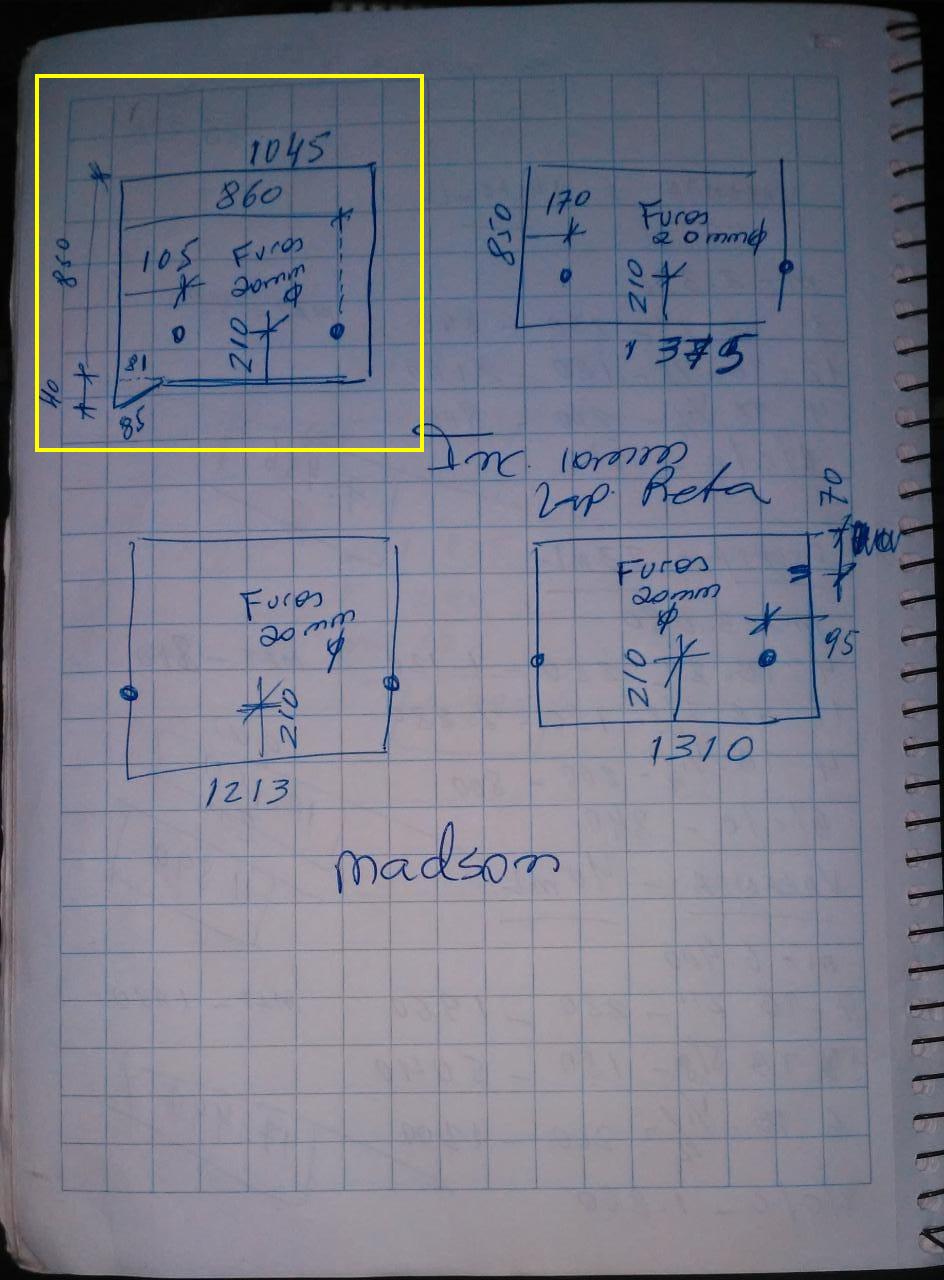 1045
860
850
105
Furos
20mm
φ
210
81
40
85
170
850
Furos
20mmφ
210
1375
Inc. 10mm
Lap. Reta
Furos
20mm
φ
210
1213
70
Furos
20mm
φ
210
95
1310
madson